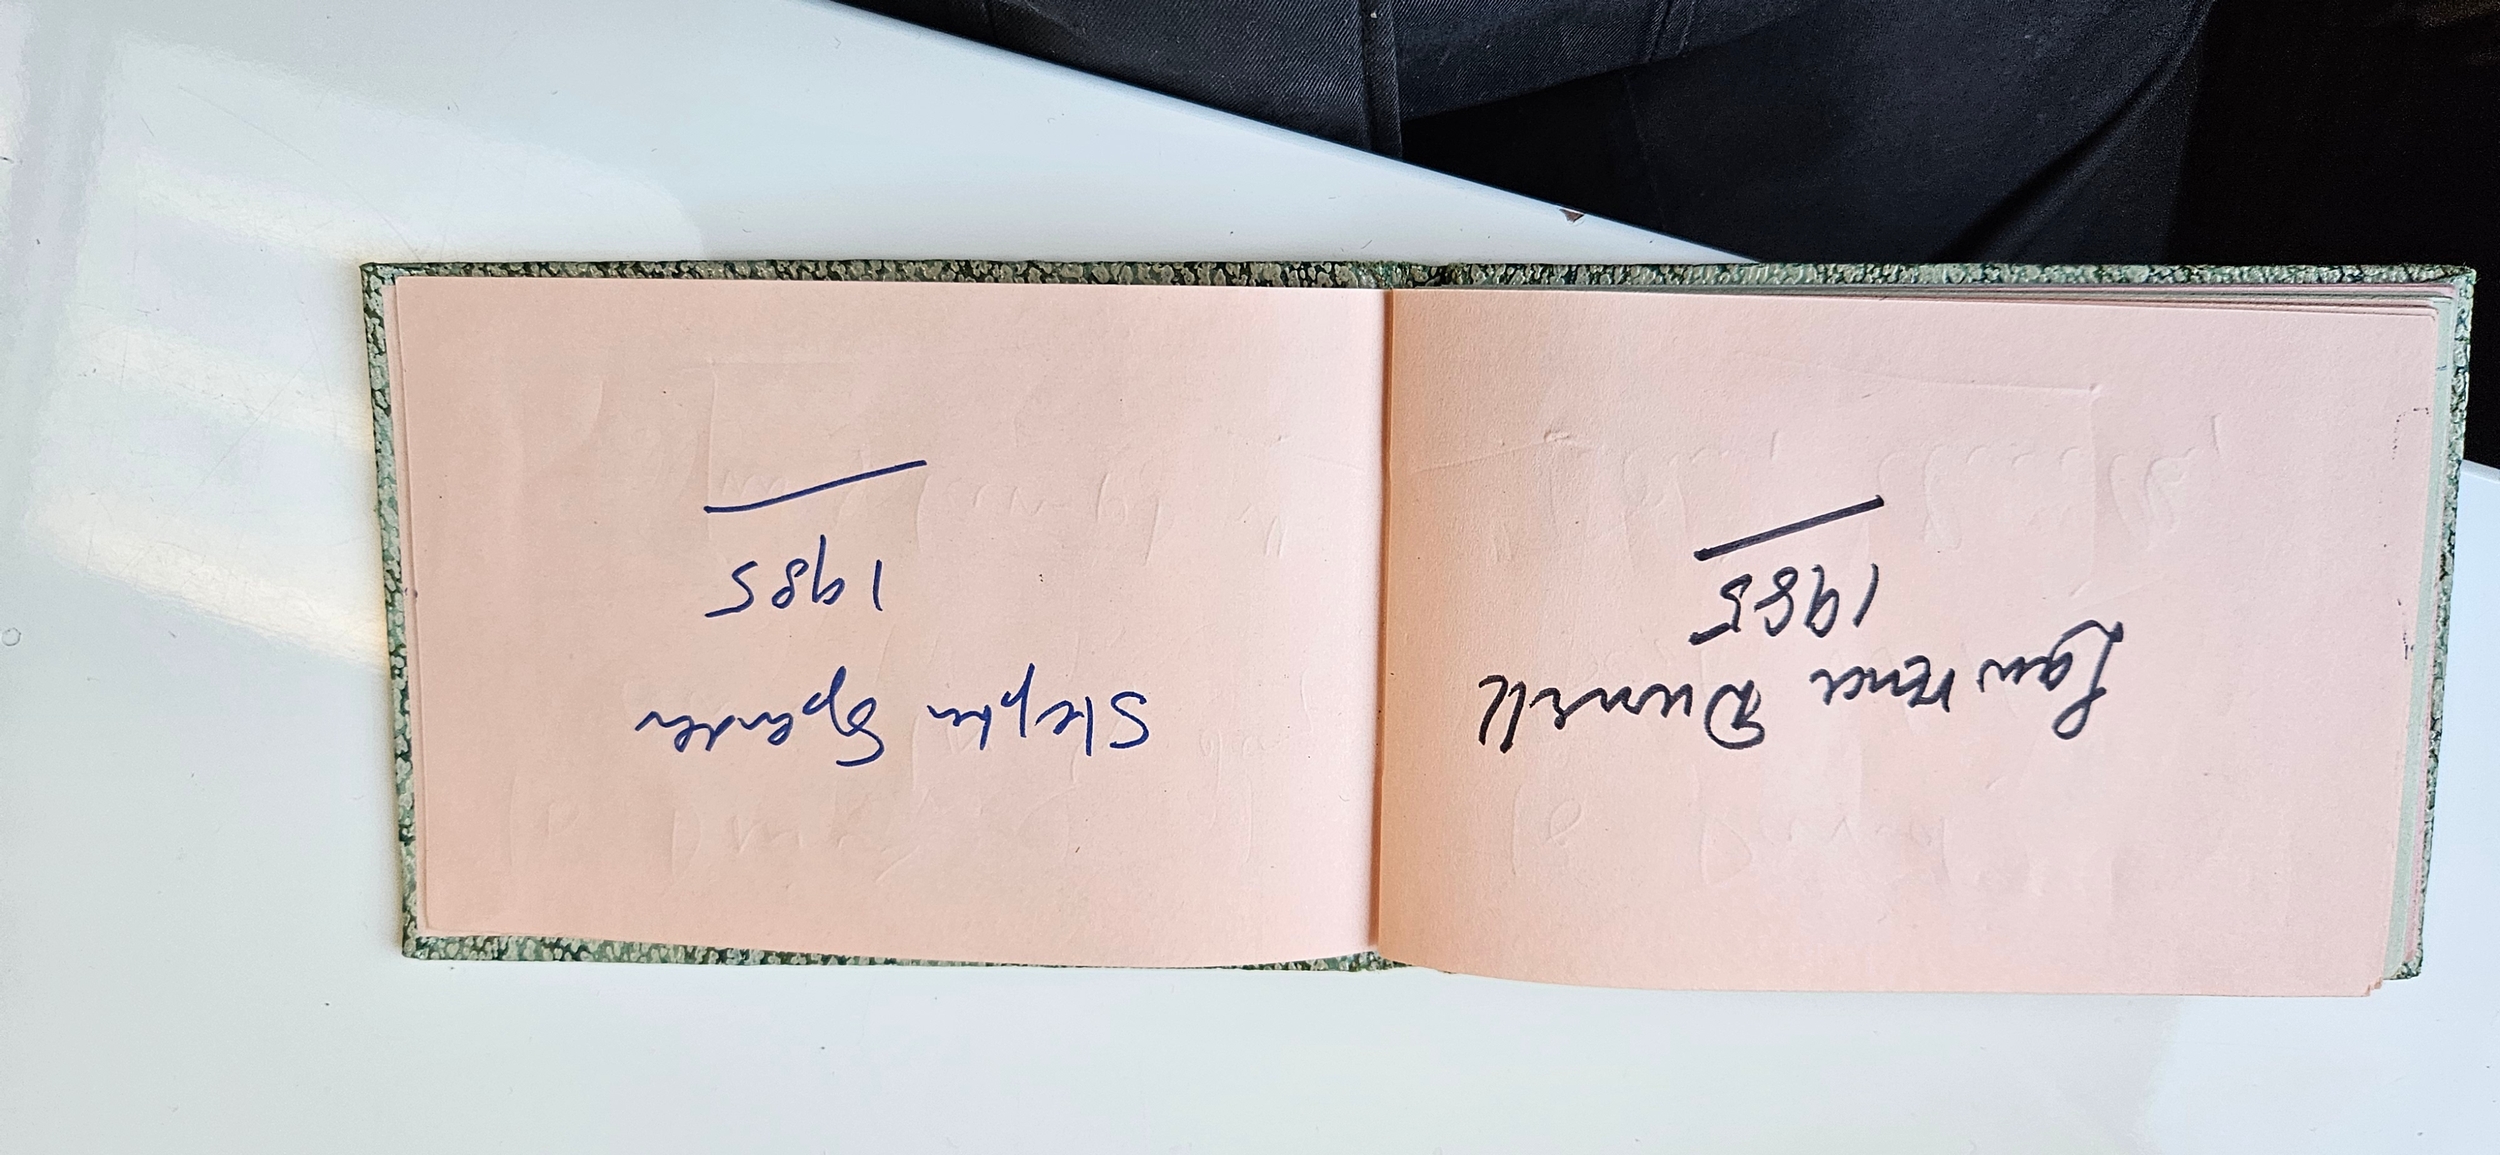 Lawrence Durrell
1985
Stephen Spender
1985